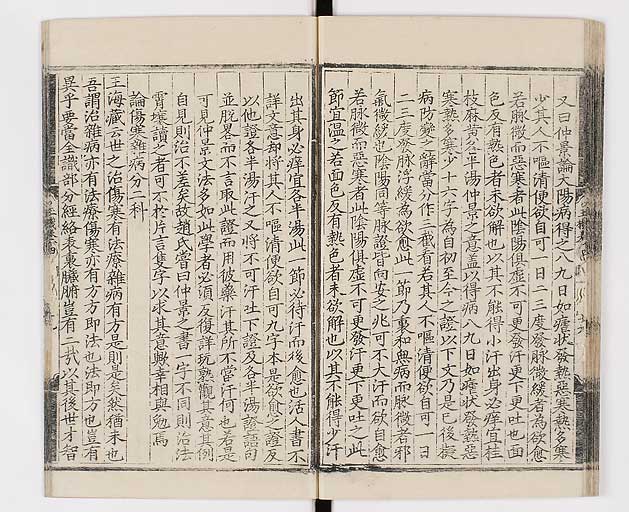 又曰仲景論太陽病得之八九日如瘧狀發熱惡寒熱多寒
少其人不嘔清便欲自可一日二三度發脉微緩者為欲愈
若脉微而惡寒者此陰陽俱虛不可更發汗更下更吐也面
色反有熱色者未欲解也以其不能得小汗出身必痒宜桂
枝麻黃各半湯仲景之意蓋以得病八九日如瘧狀發熱惡
寒熱多寒少十六字為自初至今之證以下文乃是已後擬
病防變之辭當分作三截看若其人不嘔清便欲自可一日
二三度發脉浮緩為欲愈此一節乃裏和無病而脉微者邪
氣微緩也陰陽同等脉證皆向安之兆可不大汗而欲自愈
若脉微而惡寒者此陰陽俱虛不可更發汗更下更吐之此
節宜溫之若面色反有熱色者未欲解也以其不能得少汗
出其身必痒宜各半湯此一節必待汗而後愈也活人書不
詳文意却將其人不嘔清便欲自可九字本是欲愈之證反
以他證各半湯汗之又將不可汗吐下證及各半湯證語句
並脫畧而不言取此證而用彼藥汗其所不當汗何也若是
可見仲景文法多如此學者必須反復詳玩熟觀其意其例
自見則治不差矣故趙氏嘗曰仲景之書一字不同則治法
霄壤讀之者可不於片言隻字以求其意歟幸相與勉焉
論傷寒雜病分二科
王海藏云世之治傷寒有法療雜病有方是則是矣然猶未也
吾謂治雜病亦有法療傷寒亦有方方即法也法即方也豈有
異乎要當全識部分經絡表裏臟腑豈有二哉以其後世才智